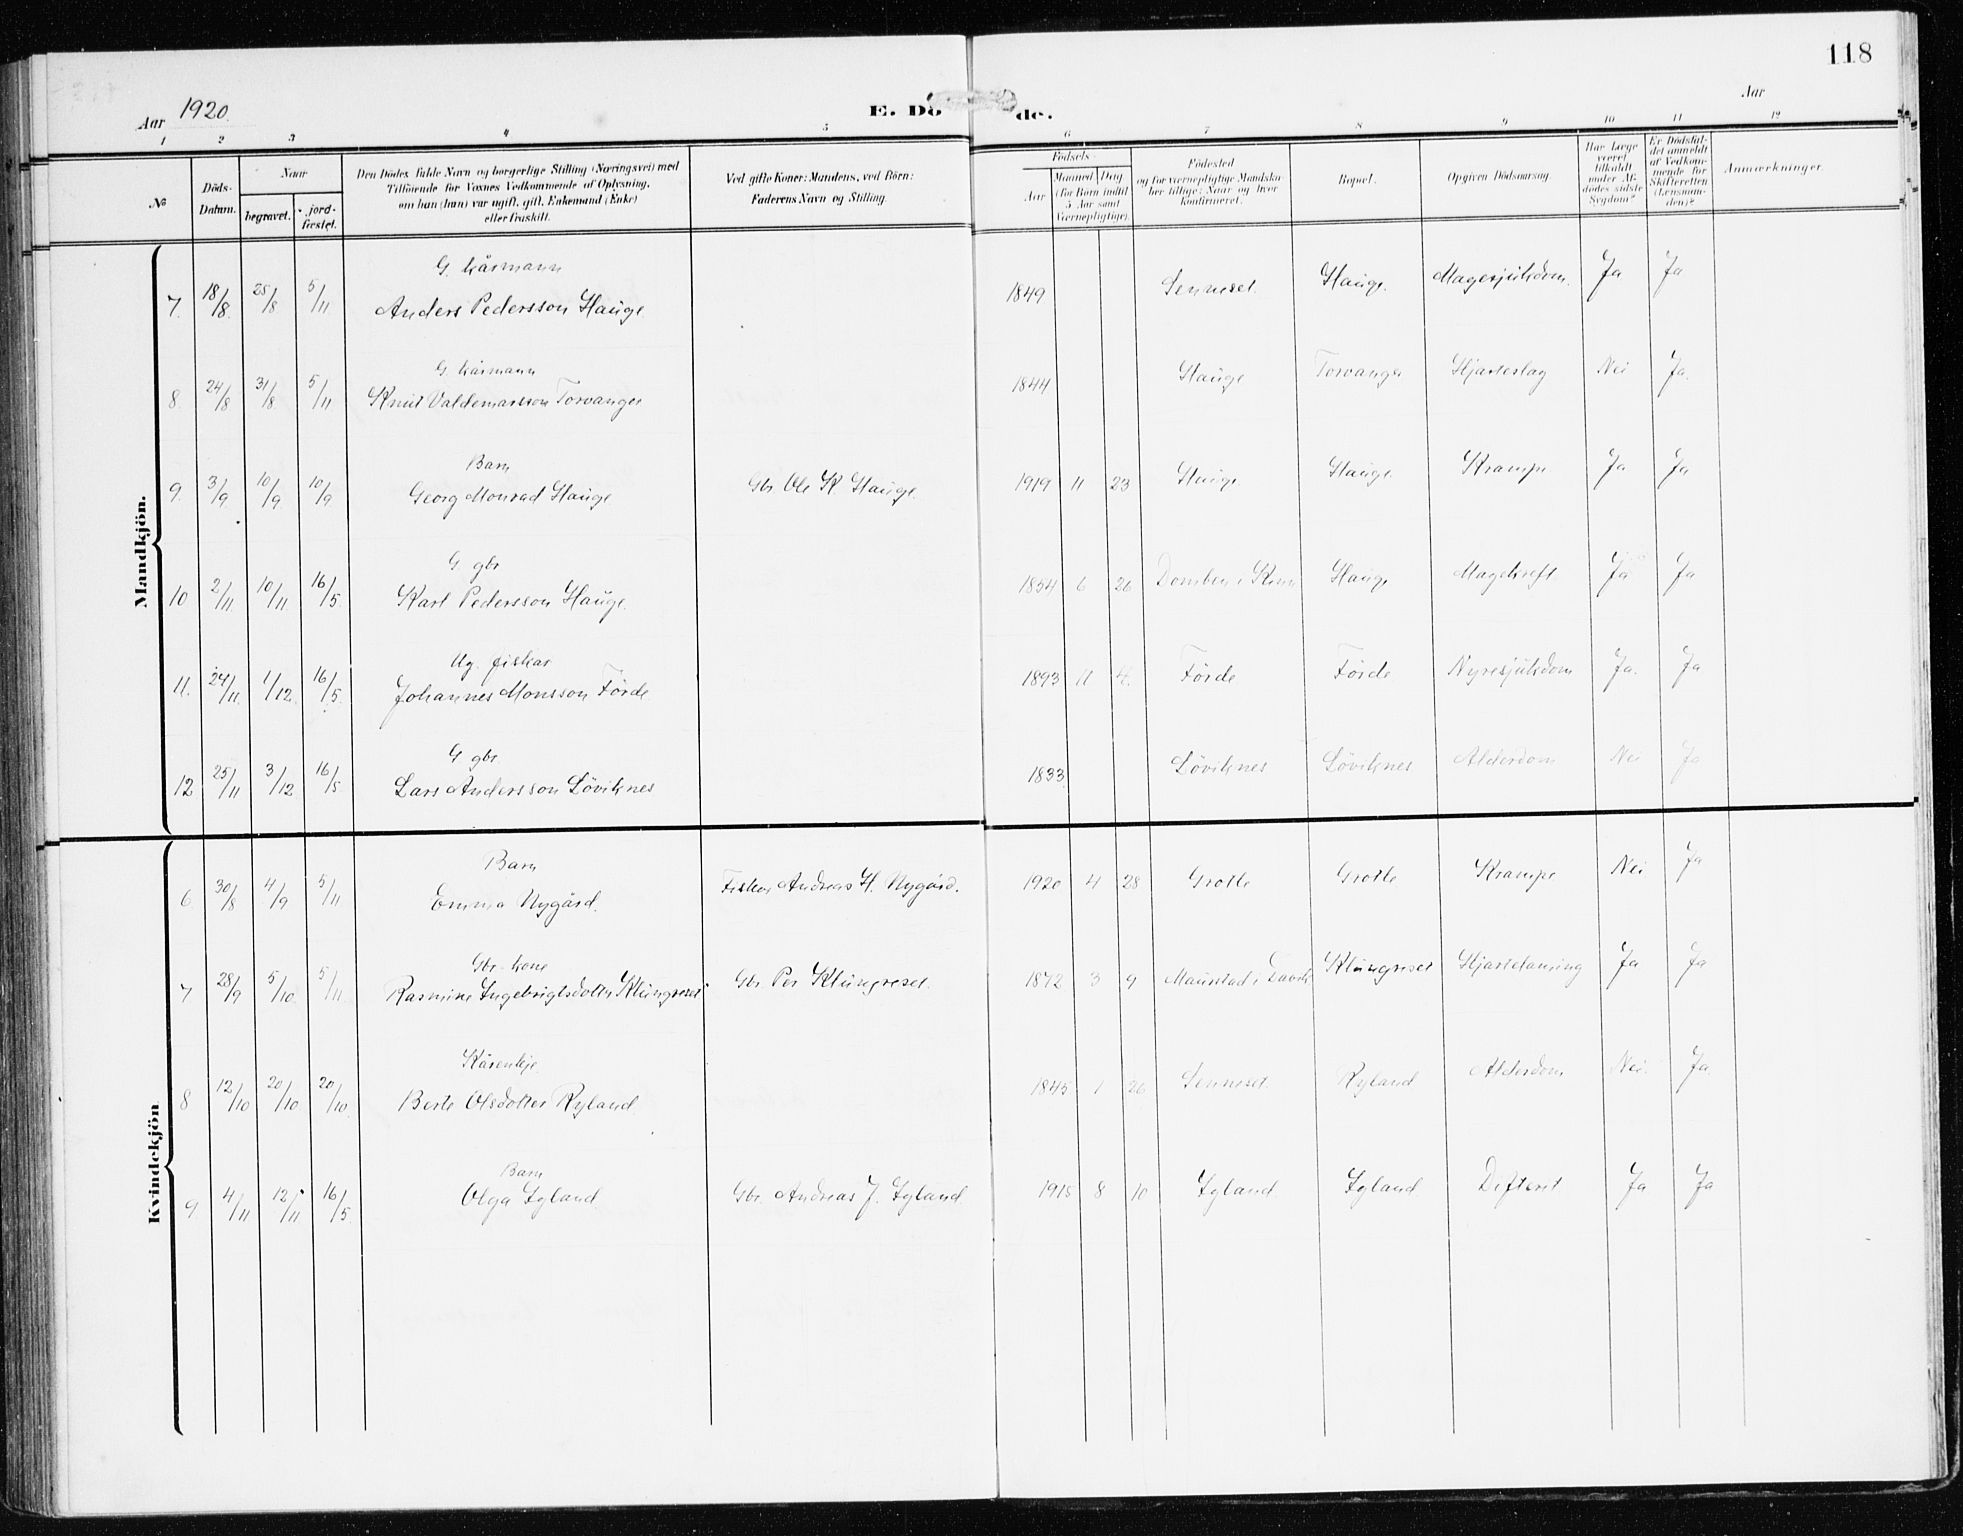 118
Aar 1920.
E. Dö de.
Aar
1 2 3 4 5 6 7 8 9 10 11 12
№
Döds-Datum.
Naar
begravet.
jord-fæstet.
Den Dödes fulde Navn og borgerlige Stilling (Næringsvei) med
Tilföiende for Voxnes Vedkommende af Oplysning,
om han (hun) var ugift, gift, Enkemand (Enke)
eller fraskilt.
Ved gifte Koner: Mandens, ved Börn:
Faderens Navn og Stilling.
Födsels-
Aar
Maaned Dag
(for Börn indtil 5 Aar samt Værnepligtige).
Födested
og for værnepligtige Mandska-
ber tillige: Naar og hvor
konfirmeret.
Bopæl.
Opgiven Dödsaarsag.
Har Læge været tilkaldt under Af-dødes sidste Sygdom?
Er Dödsfal-det anmeldt af Vedkom-mende for Skifteretten (Lensman-den)?
Anmærkninger.
Mandkjön.
G. kårmann
7. 18/8. 25/8. 5/11 Anders Pedersson Hauge 1849 Senneset. Hauge. Magesjukdom. Ja Ja
G. kårmann
8 24/8 31/8. 5/11 Knut Valdemarsson Torvanger 1844 Hauge Torvanger Hjarteslag Nei Ja.
Barn
9. 3/9. 10/9 10/9 Georg Monrad Hauge. Gbr. Ole K. Hauge. 1919 11 23 Hauge Hauge. Krampe Ja Ja
G. gbr
10 2/11 10/11 16/5. Karl Pedersson Hauge. 1854 6 26 Domben i Kinn Hauge Magekreft. Ja Ja
Ug. fiskar
11. 24/11. 1/12. 16/5. Johannes Monsson Förde 1893 11 4. Förde Förde Nyresjukdom Ja. Ja
G gbr.
12 25/11 3/12 16/5 Lars Andersson Löviknes 1833 Löviknes Löviknes Alderdom Nei Ja
Kvindekjön
Barn
6. 30/8 4/9 5/11 Emma Nygård. Fiskar Andreas H. Nygård. 1920 4 28 Grotle Grotle Krampe Nei Ja
Gbr.-kone
7 28/9 5/10. 5/11. Rasmine Ingebrigtsdotter Klungreset Gbr. Per Klungreset. 1872 3 9 Maurstad i Davik Klungreset Hjartelaming Ja Ja
Kårenkje
8 12/10 20/10 20/10. Berte Olsdotter Ryland. 1845 1 26 Senneset. Ryland Alderdom Nei. Ja.
Barn
9. 4/11 12/11 16/5. Olga Igland Gbr. Andreas J. Igland. 1915 8 10 Igland. Igland. Difterit Ja Ja